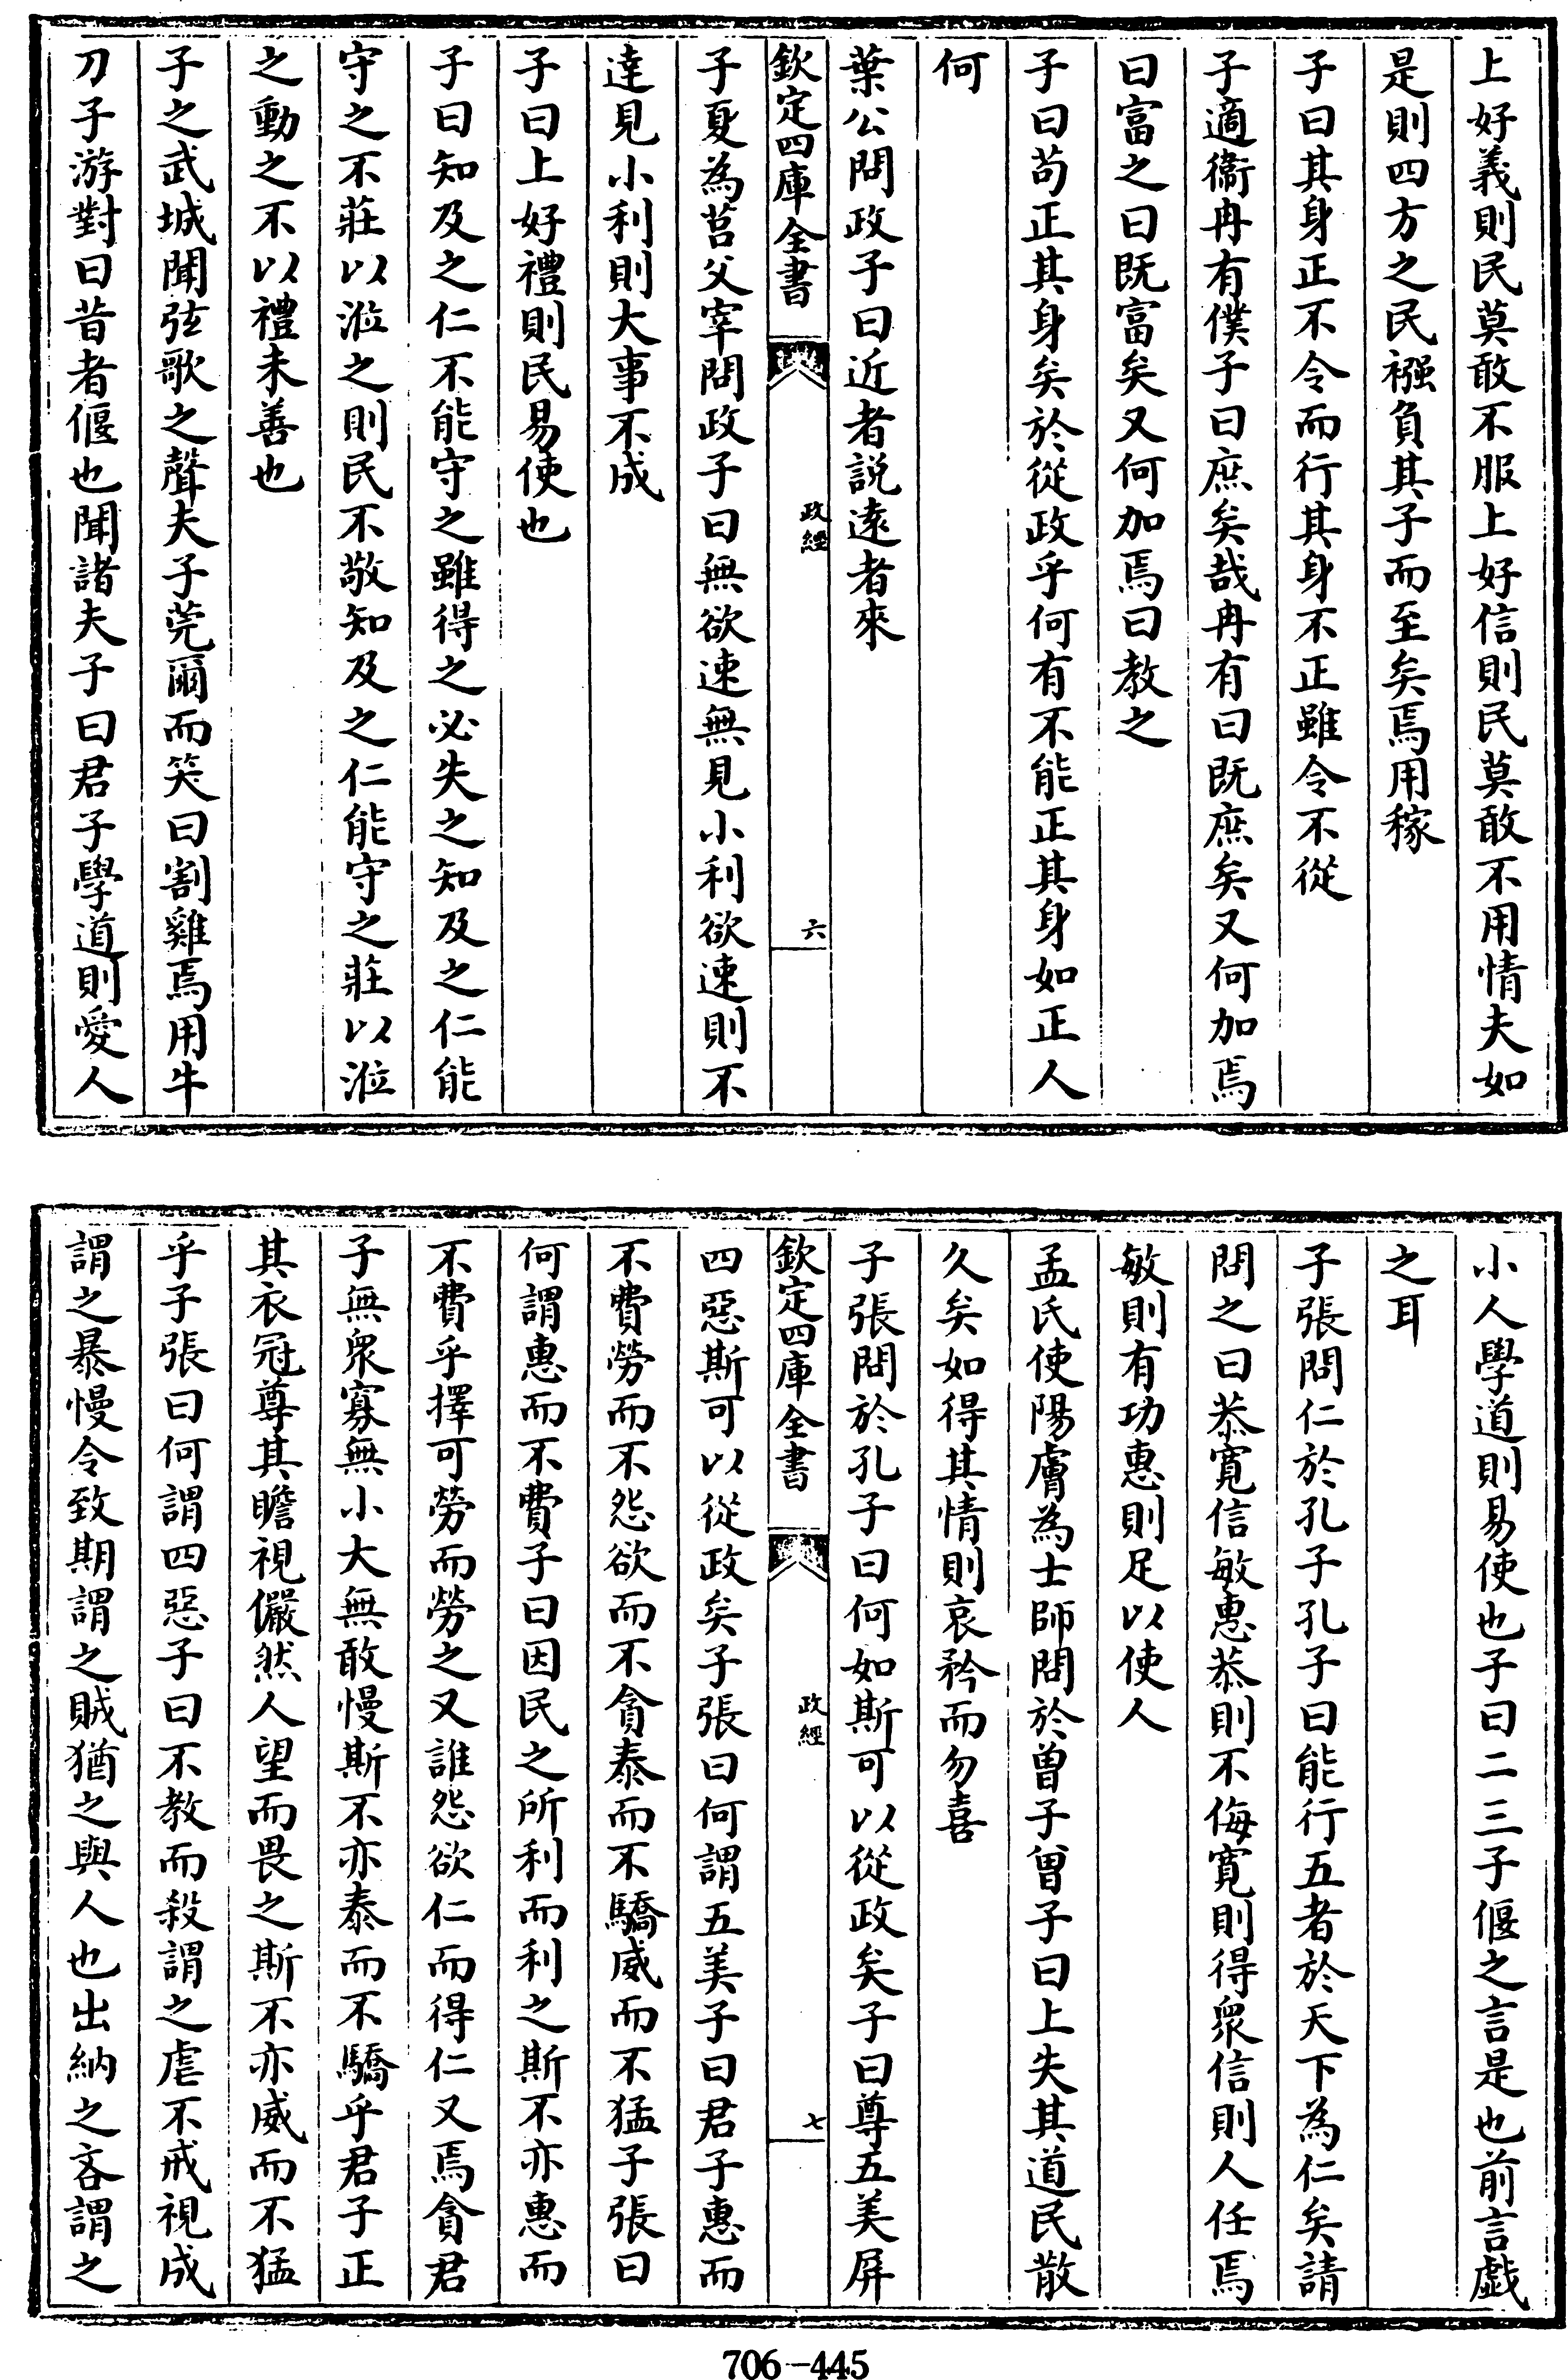 上好義則民莫敢不服上好信則民莫敢不用情夫如
是則四方之民襁負其子而至矣焉用稼
子曰其身正不令而行其身不正雖令不從
子適衞冉有僕子曰庶矣哉冉有曰既庶矣又何加焉
曰富之曰既富矣又何加焉曰教之
子曰苟正其身矣於從政乎何有不能正其身如正人
何
葉公問政子曰近者説遠者來
欽定四庫全書
政經
六
子夏為莒父宰問政子曰無欲速無見小利欲速則不
達見小利則大事不成
子曰上好禮則民易使也
子曰知及之仁不能守之雖得之必失之知及之仁能
守之不莊以涖之則民不敬知及之仁能守之莊以涖
之動之不以禮未善也
子之武城聞弦歌之聲夫子莞爾而笑曰割雞焉用牛
刀子游對曰昔者偃也聞諸夫子曰君子學道則愛人
小人學道則易使也子曰二三子偃之言是也前言戯
之耳
子張問仁於孔子孔子曰能行五者於天下為仁矣請
問之曰恭寛信敏惠恭則不侮寛則得衆信則人任焉
敏則有功惠則足以使人
孟氏使陽膚為士師問於曽子曾子曰上失其道民散
久矣如得其情則哀矜而勿喜
子張問於孔子曰何如斯可以從政矣子曰尊五美屏
欽定四庫全書
政經
七
四惡斯可以從政矣子張曰何謂五美子曰君子惠而
不費勞而不怨欲而不貪泰而不驕威而不猛子張曰
何謂惠而不費子曰因民之所利而利之斯不亦惠而
不費乎擇可勞而勞之又誰怨欲仁而得仁又焉貪君
子無衆寡無小大無敢慢斯不亦泰而不驕乎君子正
其衣冠尊其瞻視儼然人望而畏之斯不亦威而不猛
乎子張曰何謂四惡子曰不教而殺謂之虐不戒視成
謂之暴慢令致期謂之賊猶之與人也出納之吝謂之
706-445